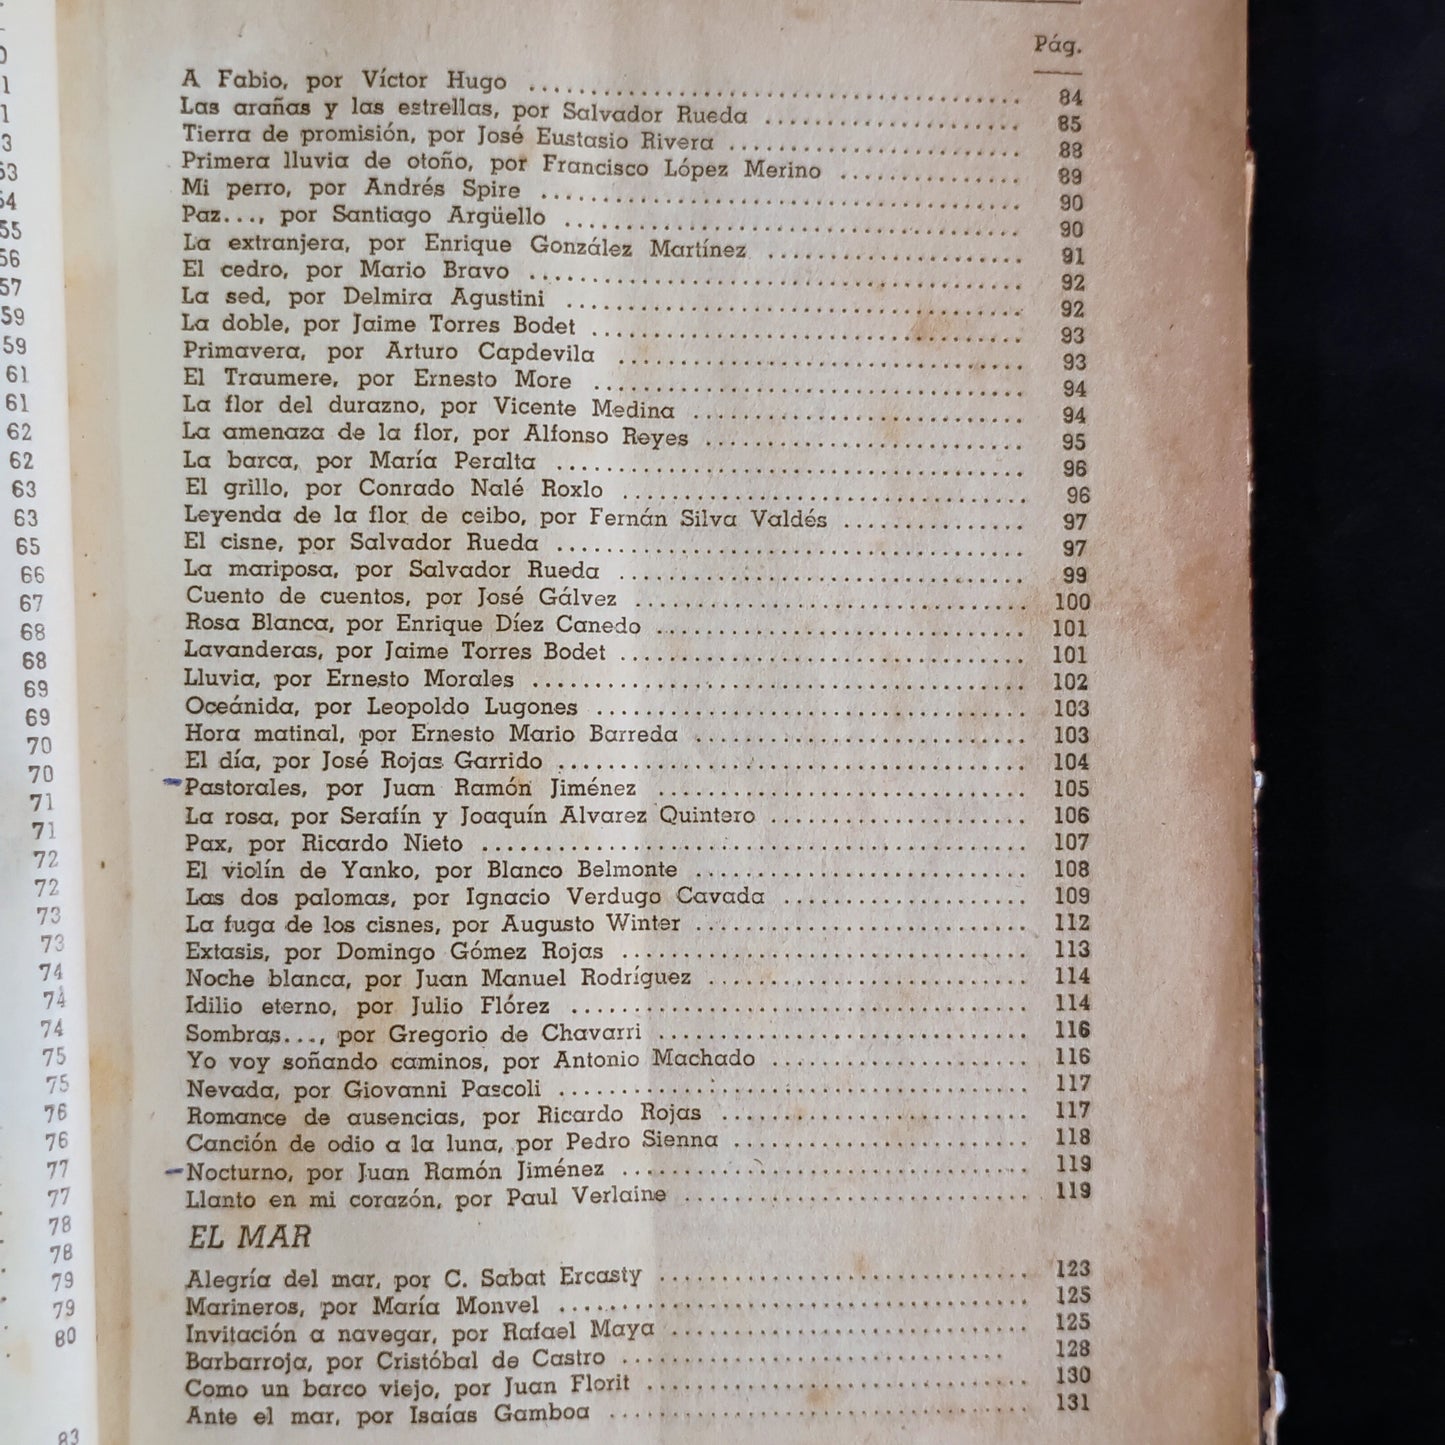 Pág.
A Fabio, por Víctor Hugo 84
Las arañas y las estrellas, por Salvador Rueda 85
Tierra de promisión, por José Eustasio Rivera 88
Primera lluvia de otoño, por Francisco López Merino 89
Mi perro, por Andrés Spire 90
Paz..., por Santiago Argüello 90
La extranjera, por Enrique González Martínez 91
El cedro, por Mario Bravo 92
La sed, por Delmira Agustini 92
La doble, por Jaime Torres Bodet 93
Primavera, por Arturo Capdevila 93
El Traumere, por Ernesto More 94
La flor del durazno, por Vicente Medina 94
La amenaza de la flor, por Alfonso Reyes 95
La barca, por María Peralta 96
El grillo, por Conrado Nalé Roxlo 96
Leyenda de la flor de ceibo, por Fernán Silva Valdés 97
El cisne, por Salvador Rueda 97
La mariposa, por Salvador Rueda 99
Cuento de cuentos, por José Gálvez 100
Rosa Blanca, por Enrique Díez Canedo 101
Lavanderas, por Jaime Torres Bodet 101
Lluvia, por Ernesto Morales 102
Oceánida, por Leopoldo Lugones 103
Hora matinal, por Ernesto Mario Barreda 103
El día, por José Rojas Garrido 104
Pastorales, por Juan Ramón Jiménez 105
La rosa, por Serafín y Joaquín Alvarez Quintero 106
Pax, por Ricardo Nieto 107
El violín de Yanko, por Blanco Belmonte 108
Las dos palomas, por Ignacio Verdugo Cavada 109
La fuga de los cisnes, por Augusto Winter 112
Extasis, por Domingo Gómez Rojas 113
Noche blanca, por Juan Manuel Rodríguez 114
Idilio eterno, por Julio Flórez 114
Sombras..., por Gregorio de Chavarri 116
Yo voy soñando caminos, por Antonio Machado 116
Nevada, por Giovanni Pascoli 117
Romance de ausencias, por Ricardo Rojas 117
Canción de odio a la luna, por Pedro Sienna 118
Nocturno, por Juan Ramón Jiménez 119
Llanto en mi corazón, por Paul Verlaine 119
EL MAR
Alegría del mar, por C. Sabat Ercasty 123
Marineros, por María Monvel 125
Invitación a navegar, por Rafael Maya 125
Barbarroja, por Cristóbal de Castro 128
Como un barco viejo, por Juan Florit 130
Ante el mar, por Isaías Gamboa 131
53
54
55
56
57
59
59
61
61
62
62
63
63
65
66
67
68
68
69
69
70
70
71
71
72
72
73
73
74
74
74
75
75
76
76
77
77
78
78
79
79
80
83